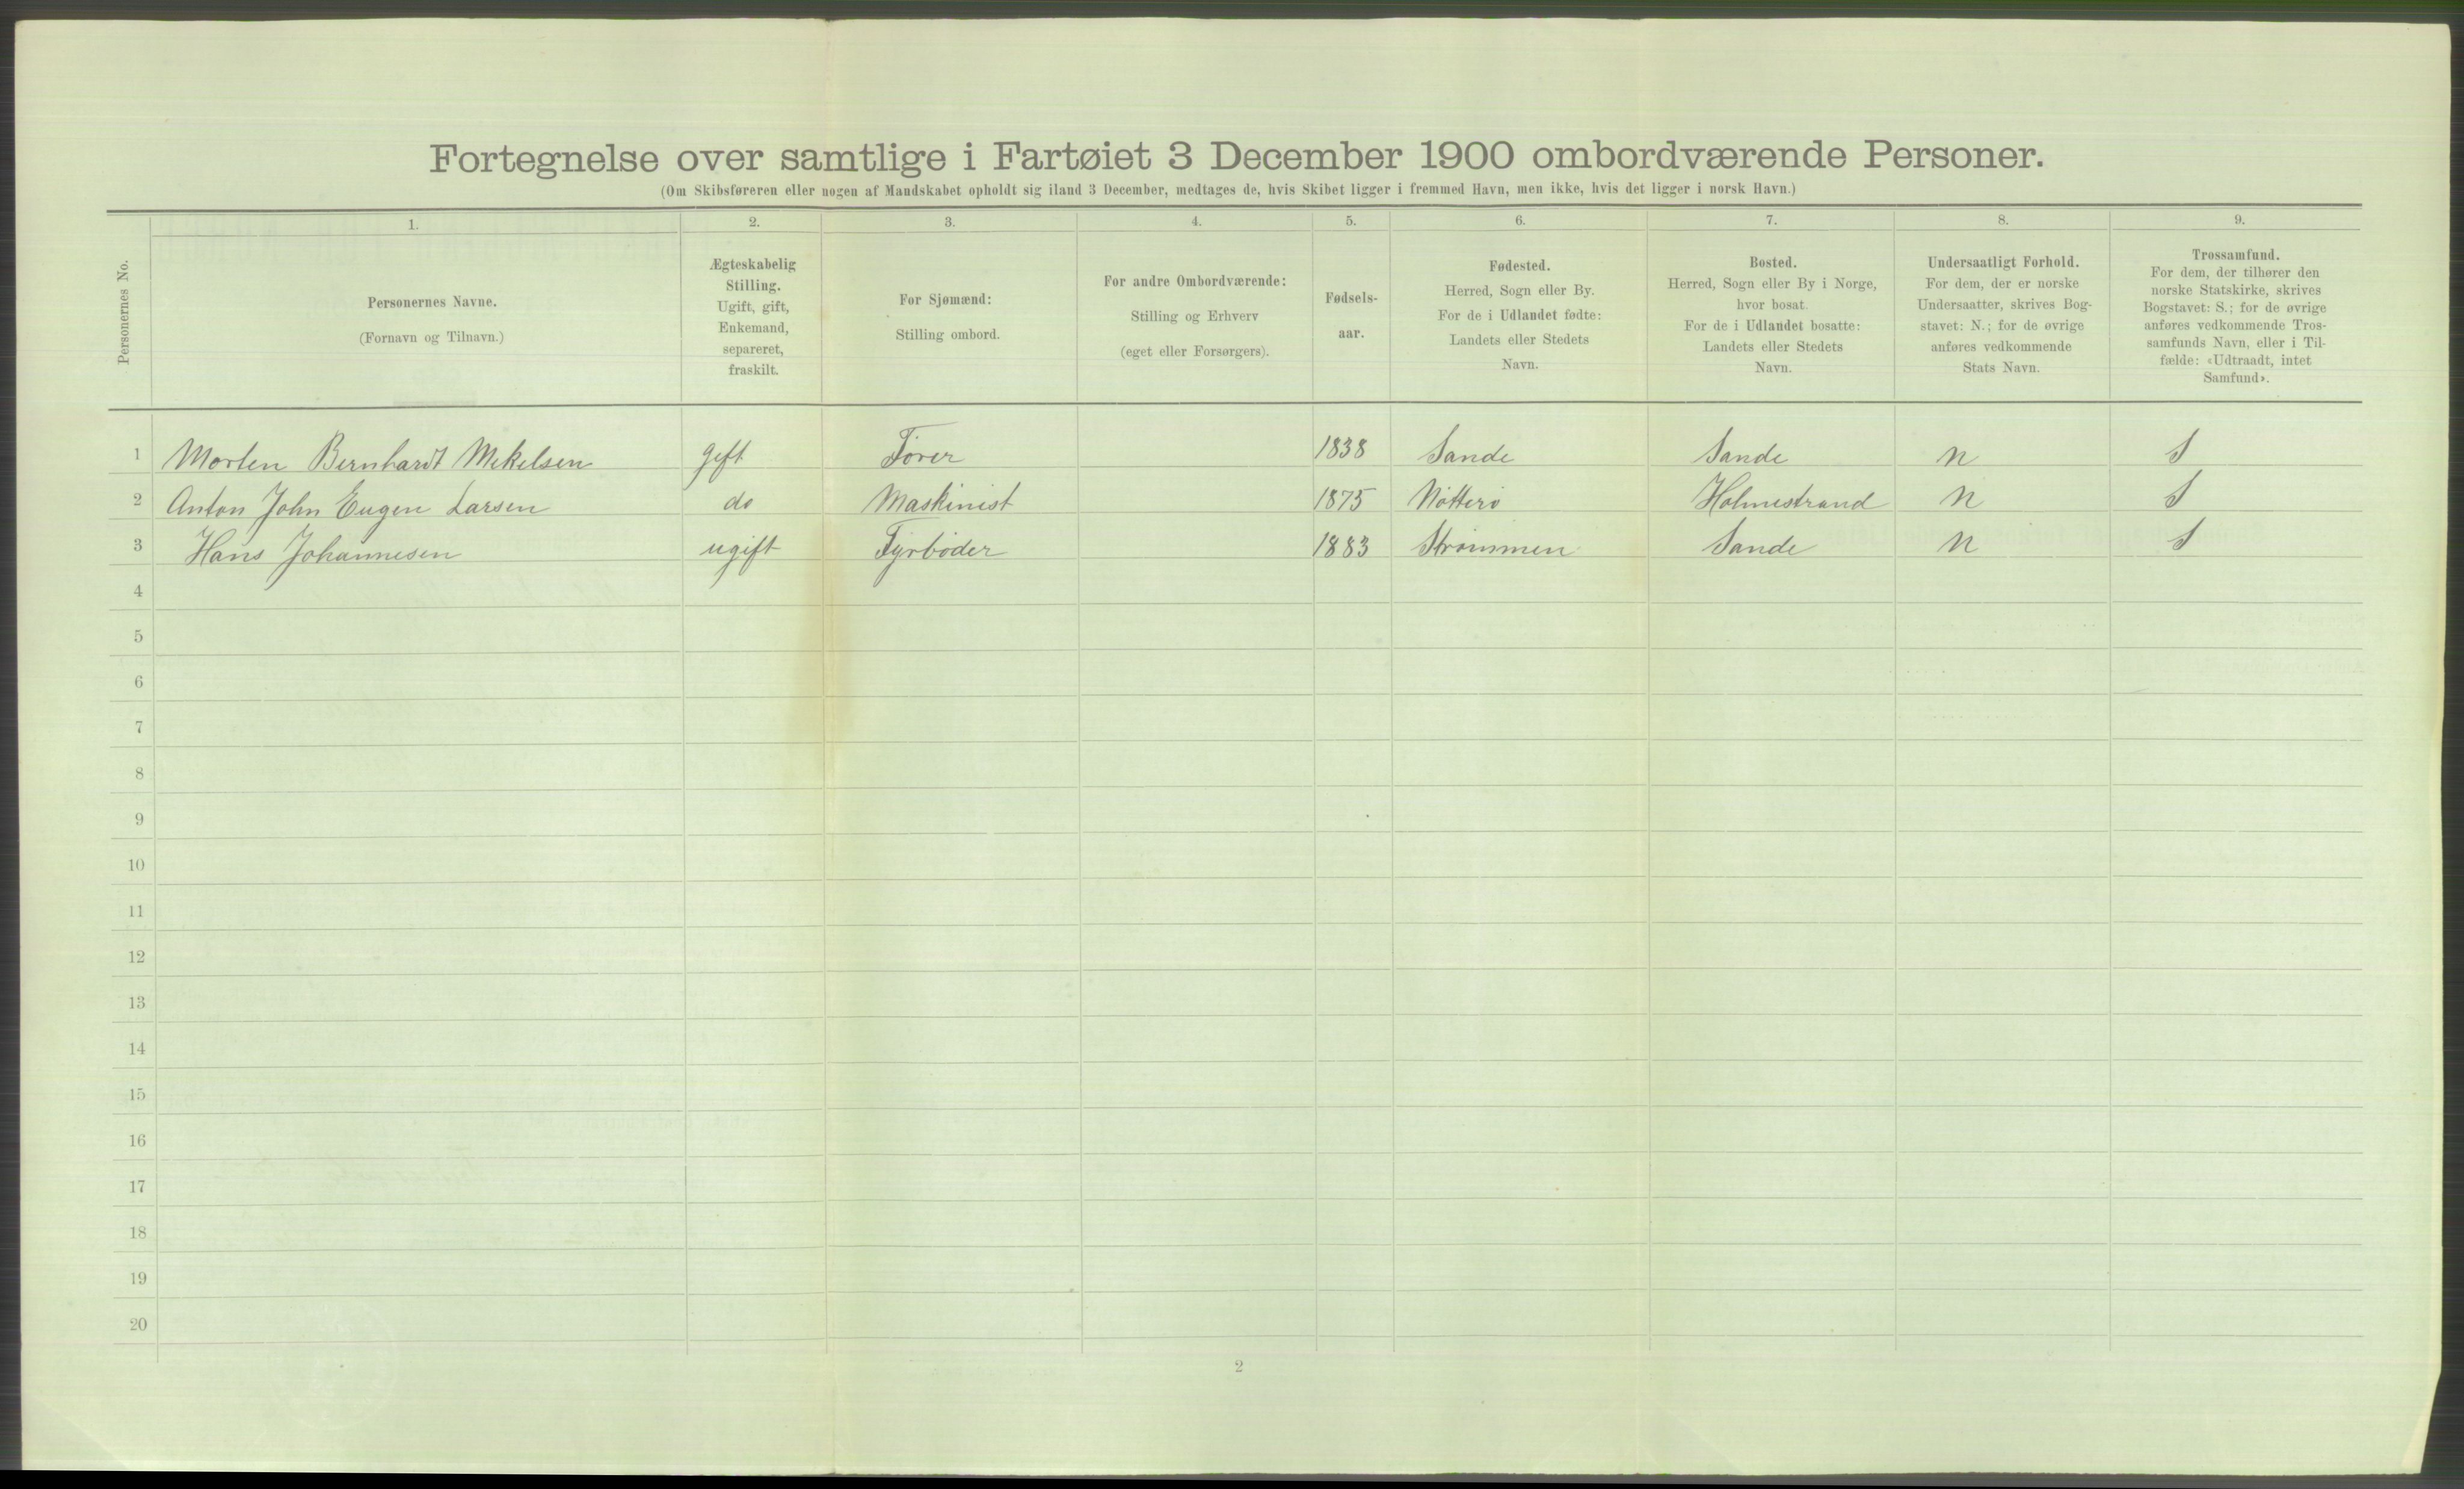 Fortegnelse over samtlige i Fartøiet 3 December 1900 ombordværende Personer.
(Om Skibsføreren eller nogen af Mandskabet opholdt sig iland 3 December, medtages de, hvis Skibet ligger i fremmed Havn, men ikke, hvis det ligger i norsk Havn.)
Personernes No.
1.
Personernes Navne.
(Fornavn og Tilnavn.)
2.
Ægteskabelig
Stilling.
Ugift, gift,
Enkemand,
separeret,
fraskilt.
3.
For Sjømænd:
Stilling ombord.
4.
For andre Ombordværende:
Stilling og Erhverv
(eget eller Forsørgers).
5.
Fødsels-
aar.
6.
Fødested.
Herred, Sogn eller By.
For de i Udlandet fødte:
Landets eller Stedets
Navn.
7.
Bosted.
Herred, Sogn eller By i Norge,
hvor bosat.
For de i Udlandet bosatte:
Landets eller Stedets
Navn.
8.
Undersaatligt Forhold.
For dem, der er norske
Undersaatter, skrives Bog-
stavet: N.; for de øvrige
anføres vedkommende
Stats Navn.
9.
Trossamfund.
For dem, der tilhører den
norske Statskirke, skrives
Bogstavet: S.; for de øvrige
anføres vedkommende Tros-
samfunds Navn, eller i Til-
fælde: «Udtraadt, intet
Samfund».
1 Morten Bernhardt Mekelsen gift Fører 1838 Sande Sande N S
2 Anton John Eugen Larsen do Maskinist 1875 Nötterö Holmestrand N S
3 Hans Johannesen ugift Fyrböder 1883 Strömmen Sande N S
4
5
6
7
8
9
10
11
12
13
14
15
16
17
18
19
20
2